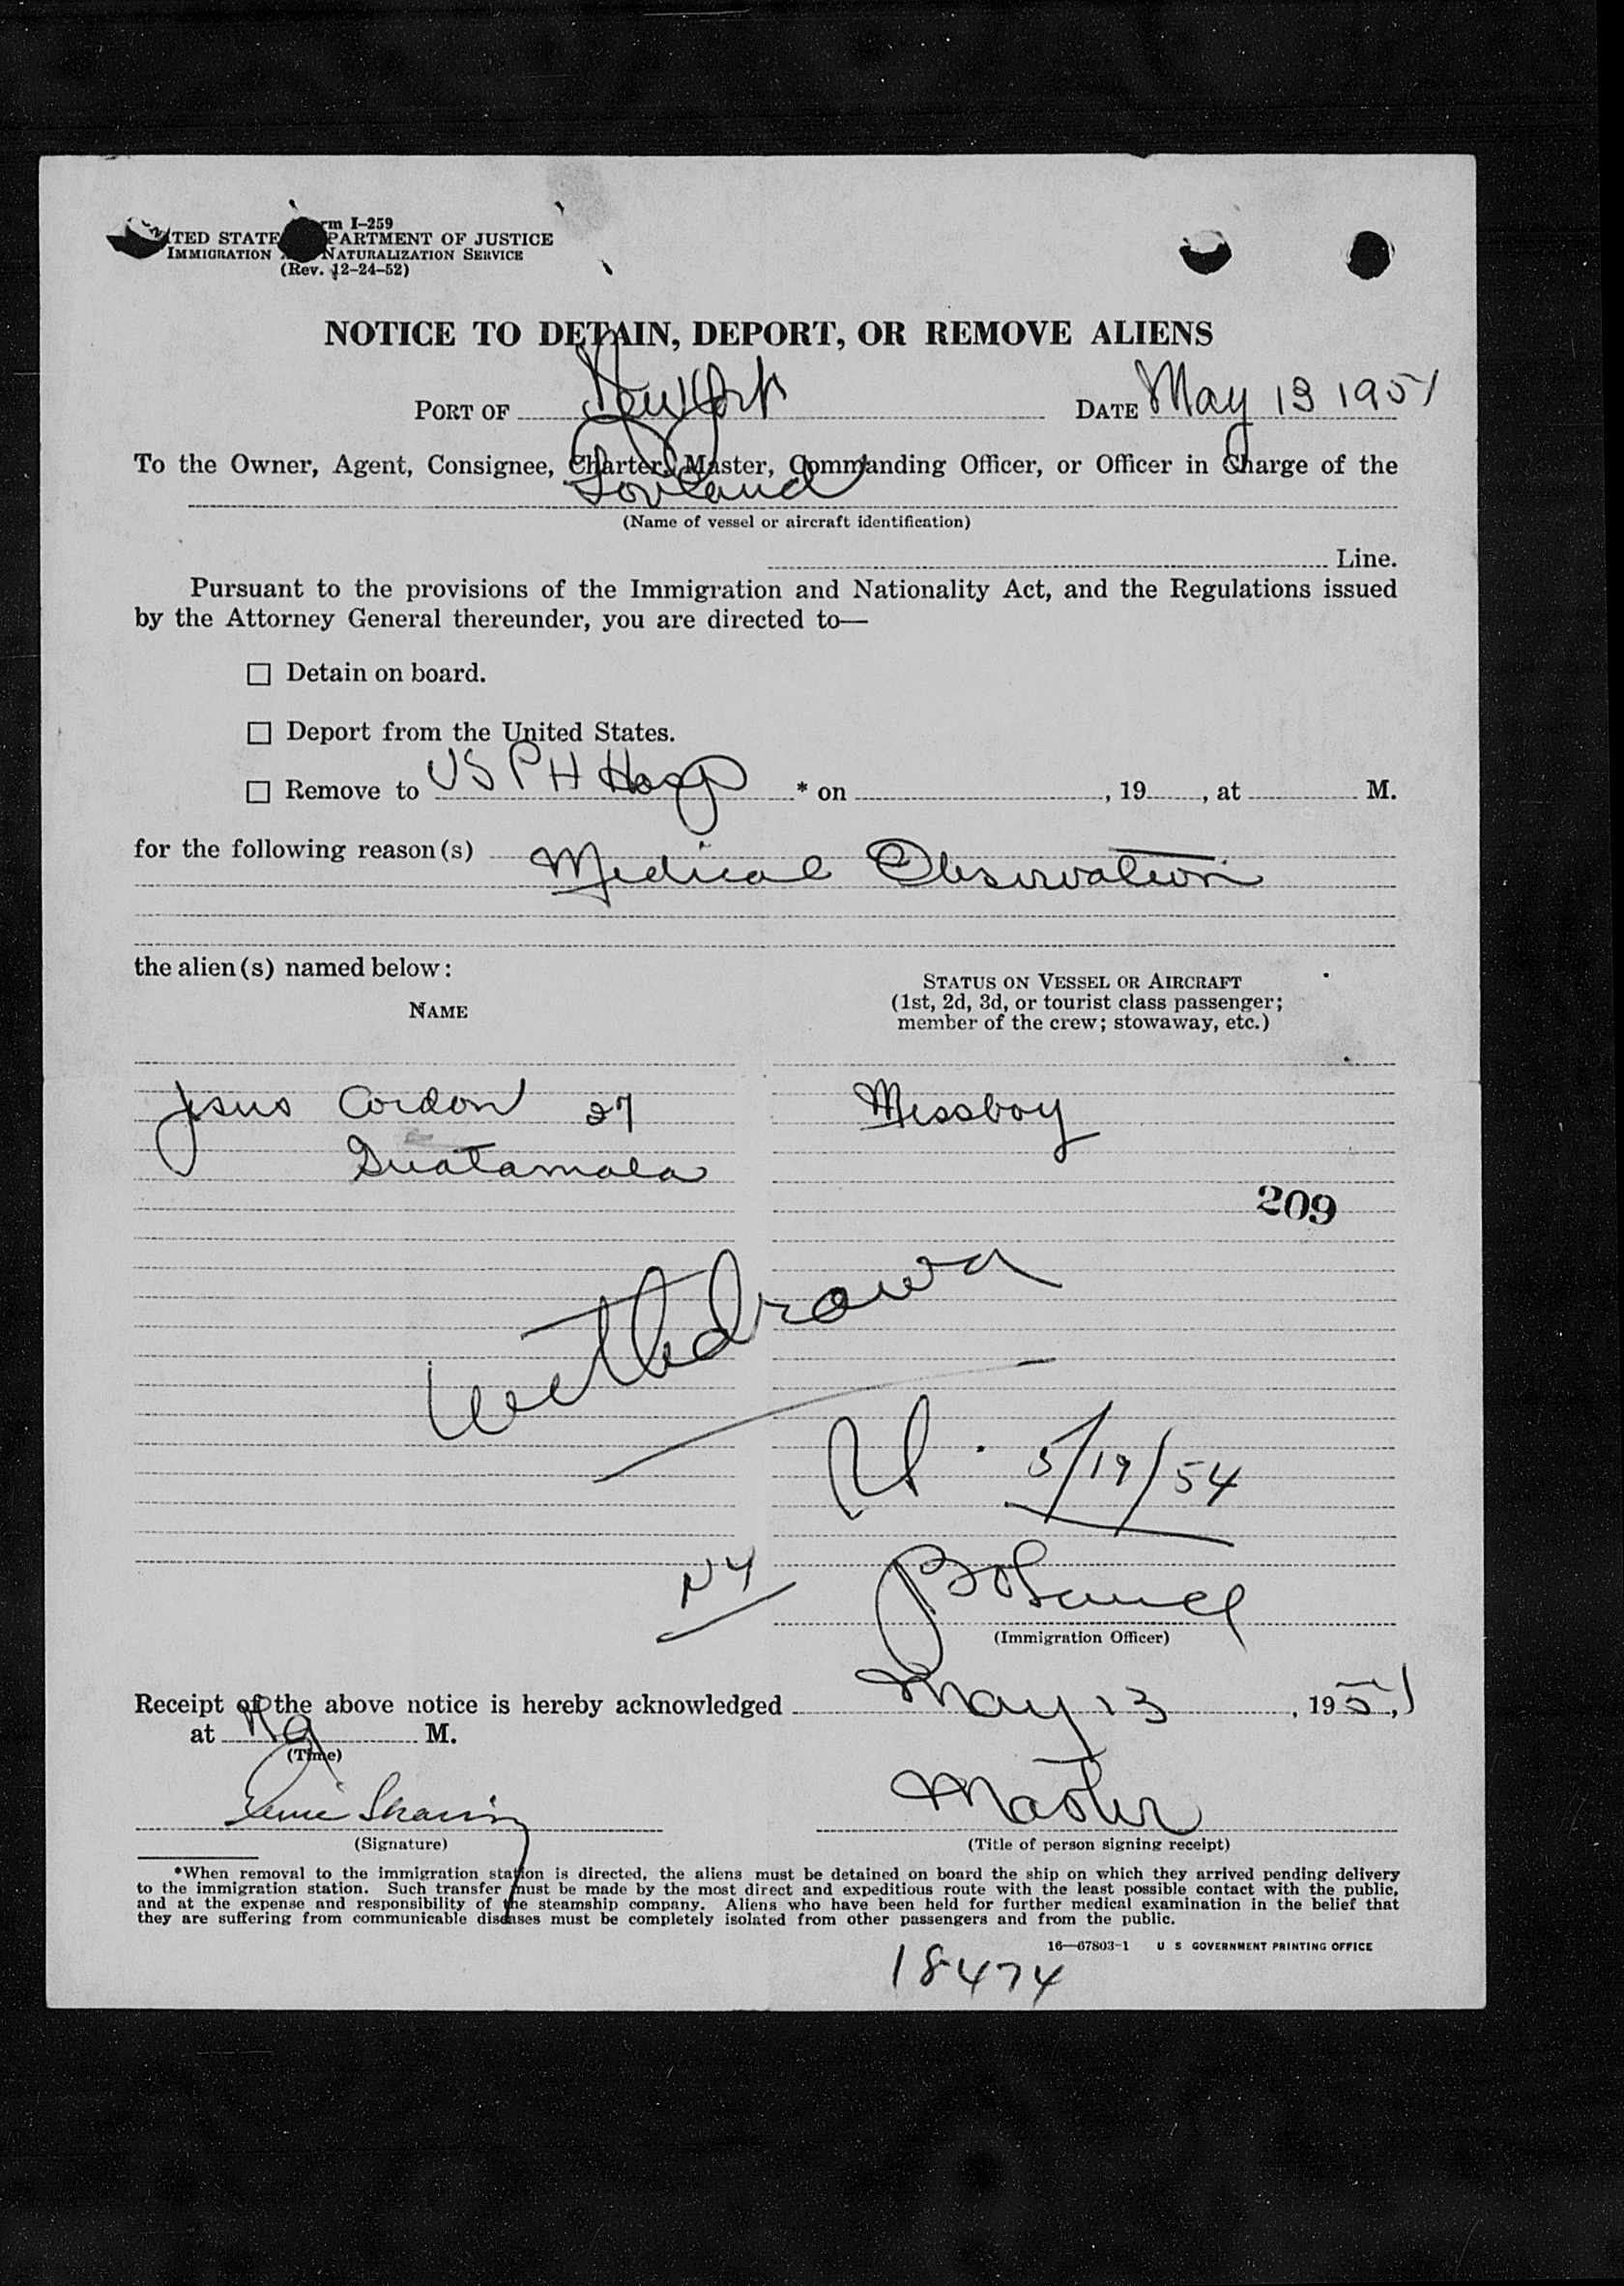 rm I-259
TED STATE PARTMENT OF JUSTICE
IMMIGRATION NATURALIZATION SERVICE
(Rev. 12-24-52)
NOTICE TO DETAIN, DEPORT, OR REMOVE ALIENS
PORT OF New York DATE May 13 1951
To the Owner, Agent, Consignee, Charter, Master, Commanding Officer, or Officer in Charge of the
(Name of vessel or aircraft identification)
Line.
Pursuant to the provisions of the Immigration and Nationality Act, and the Regulations issued
by the Attorney General thereunder, you are directed to—
☐ Detain on board.
☐ Deport from the United States.
☐ Remove to USPH Hosp * on , 19 , at M.
for the following reason(s) Medical Observation
the alien(s) named below:
NAME
STATUS ON VESSEL OR AIRCRAFT
(1st, 2d, 3d, or tourist class passenger;
member of the crew; stowaway, etc.)
Jesus Cordon 27 Messboy
Guatamala
209
Withdrawn
5/19/54
NY
(Immigration Officer)
Receipt of the above notice is hereby acknowledged May 13, 1951
at M.
(Time)
Master
(Signature) (Title of person signing receipt)
*When removal to the immigration station is directed, the aliens must be detained on board the ship on which they arrived pending delivery
to the immigration station. Such transfer must be made by the most direct and expeditious route with the least possible contact with the public,
and at the expense and responsibility of the steamship company. Aliens who have been held for further medical examination in the belief that
they are suffering from communicable diseases must be completely isolated from other passengers and from the public.
16—67803-1 U S GOVERNMENT PRINTING OFFICE
18474